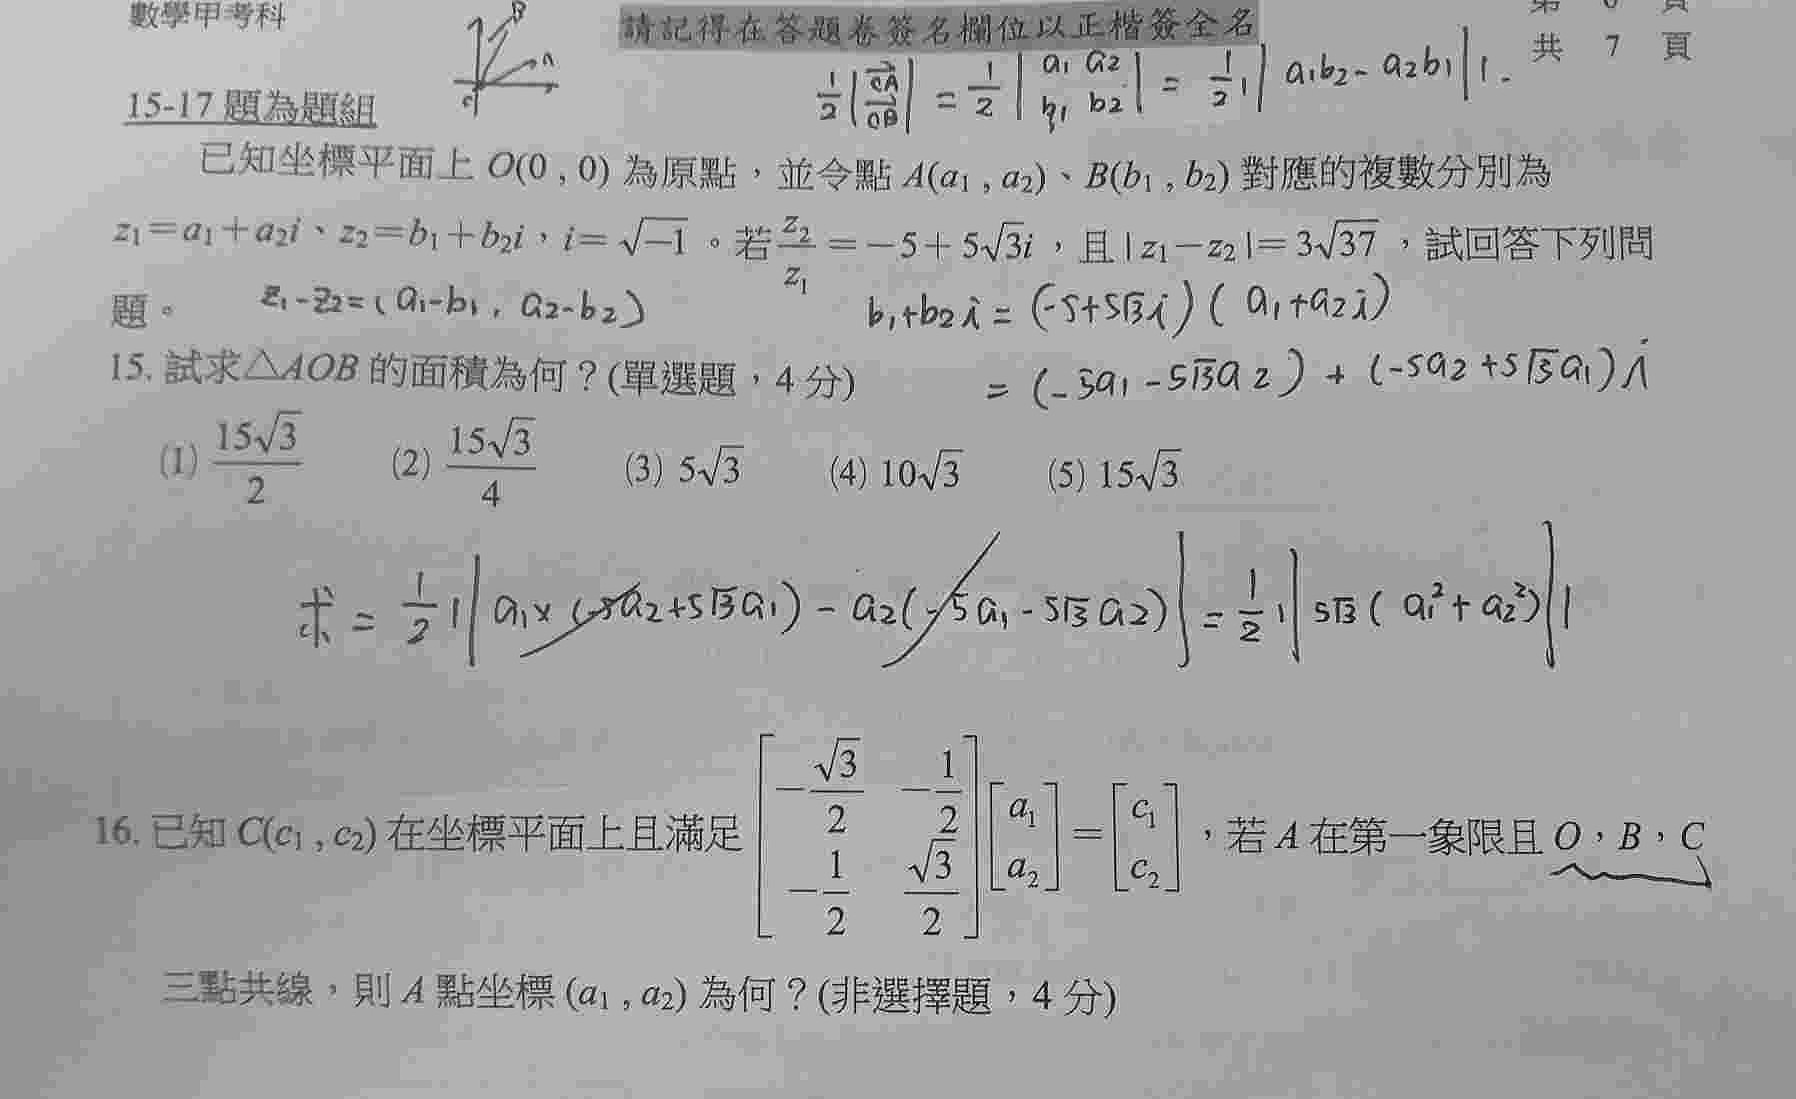 數學甲考科
請記得在答題卷簽名欄位以正楷簽全名
共 7 頁
B
A
1/2 |OA OB| = 1/2 |a1 a2 b1 b2| = 1/2 || a1b2 - a2b1 ||.
15-17 題為題組
已知坐標平面上 O(0 , 0) 為原點，並令點 A(a₁ , a₂)、B(b₁ , b₂) 對應的複數分別為
z₁=a₁+a₂i、z₂=b₁+b₂i，i=√−1。若 z₂/z₁ =−5+5√3i，且 |z₁−z₂|=3√37，試回答下列問
題。
z₁-z₂=(a₁-b₁, a₂-b₂)
b₁+b₂i = (-5+5√3i)(a₁+a₂i)
= (-5a₁-5√3a₂) + (-5a₂+5√3a₁)i
15. 試求△AOB 的面積為何？(單選題，4 分)
(1) 15√3/2 (2) 15√3/4 (3) 5√3 (4) 10√3 (5) 15√3
求 = 1/2 || a₁×(-5a₂+5√3a₁) - a₂(-5a₁-5√3a₂) | = 1/2 || 5√3(a₁²+a₂²) ||
16. 已知 C(c₁ , c₂) 在坐標平面上且滿足 [−√3/2 −1/2 −1/2 √3/2] [a₁ a₂] = [c₁ c₂]，若 A 在第一象限且 O，B，C
三點共線，則 A 點坐標 (a₁ , a₂) 為何？(非選擇題，4 分)